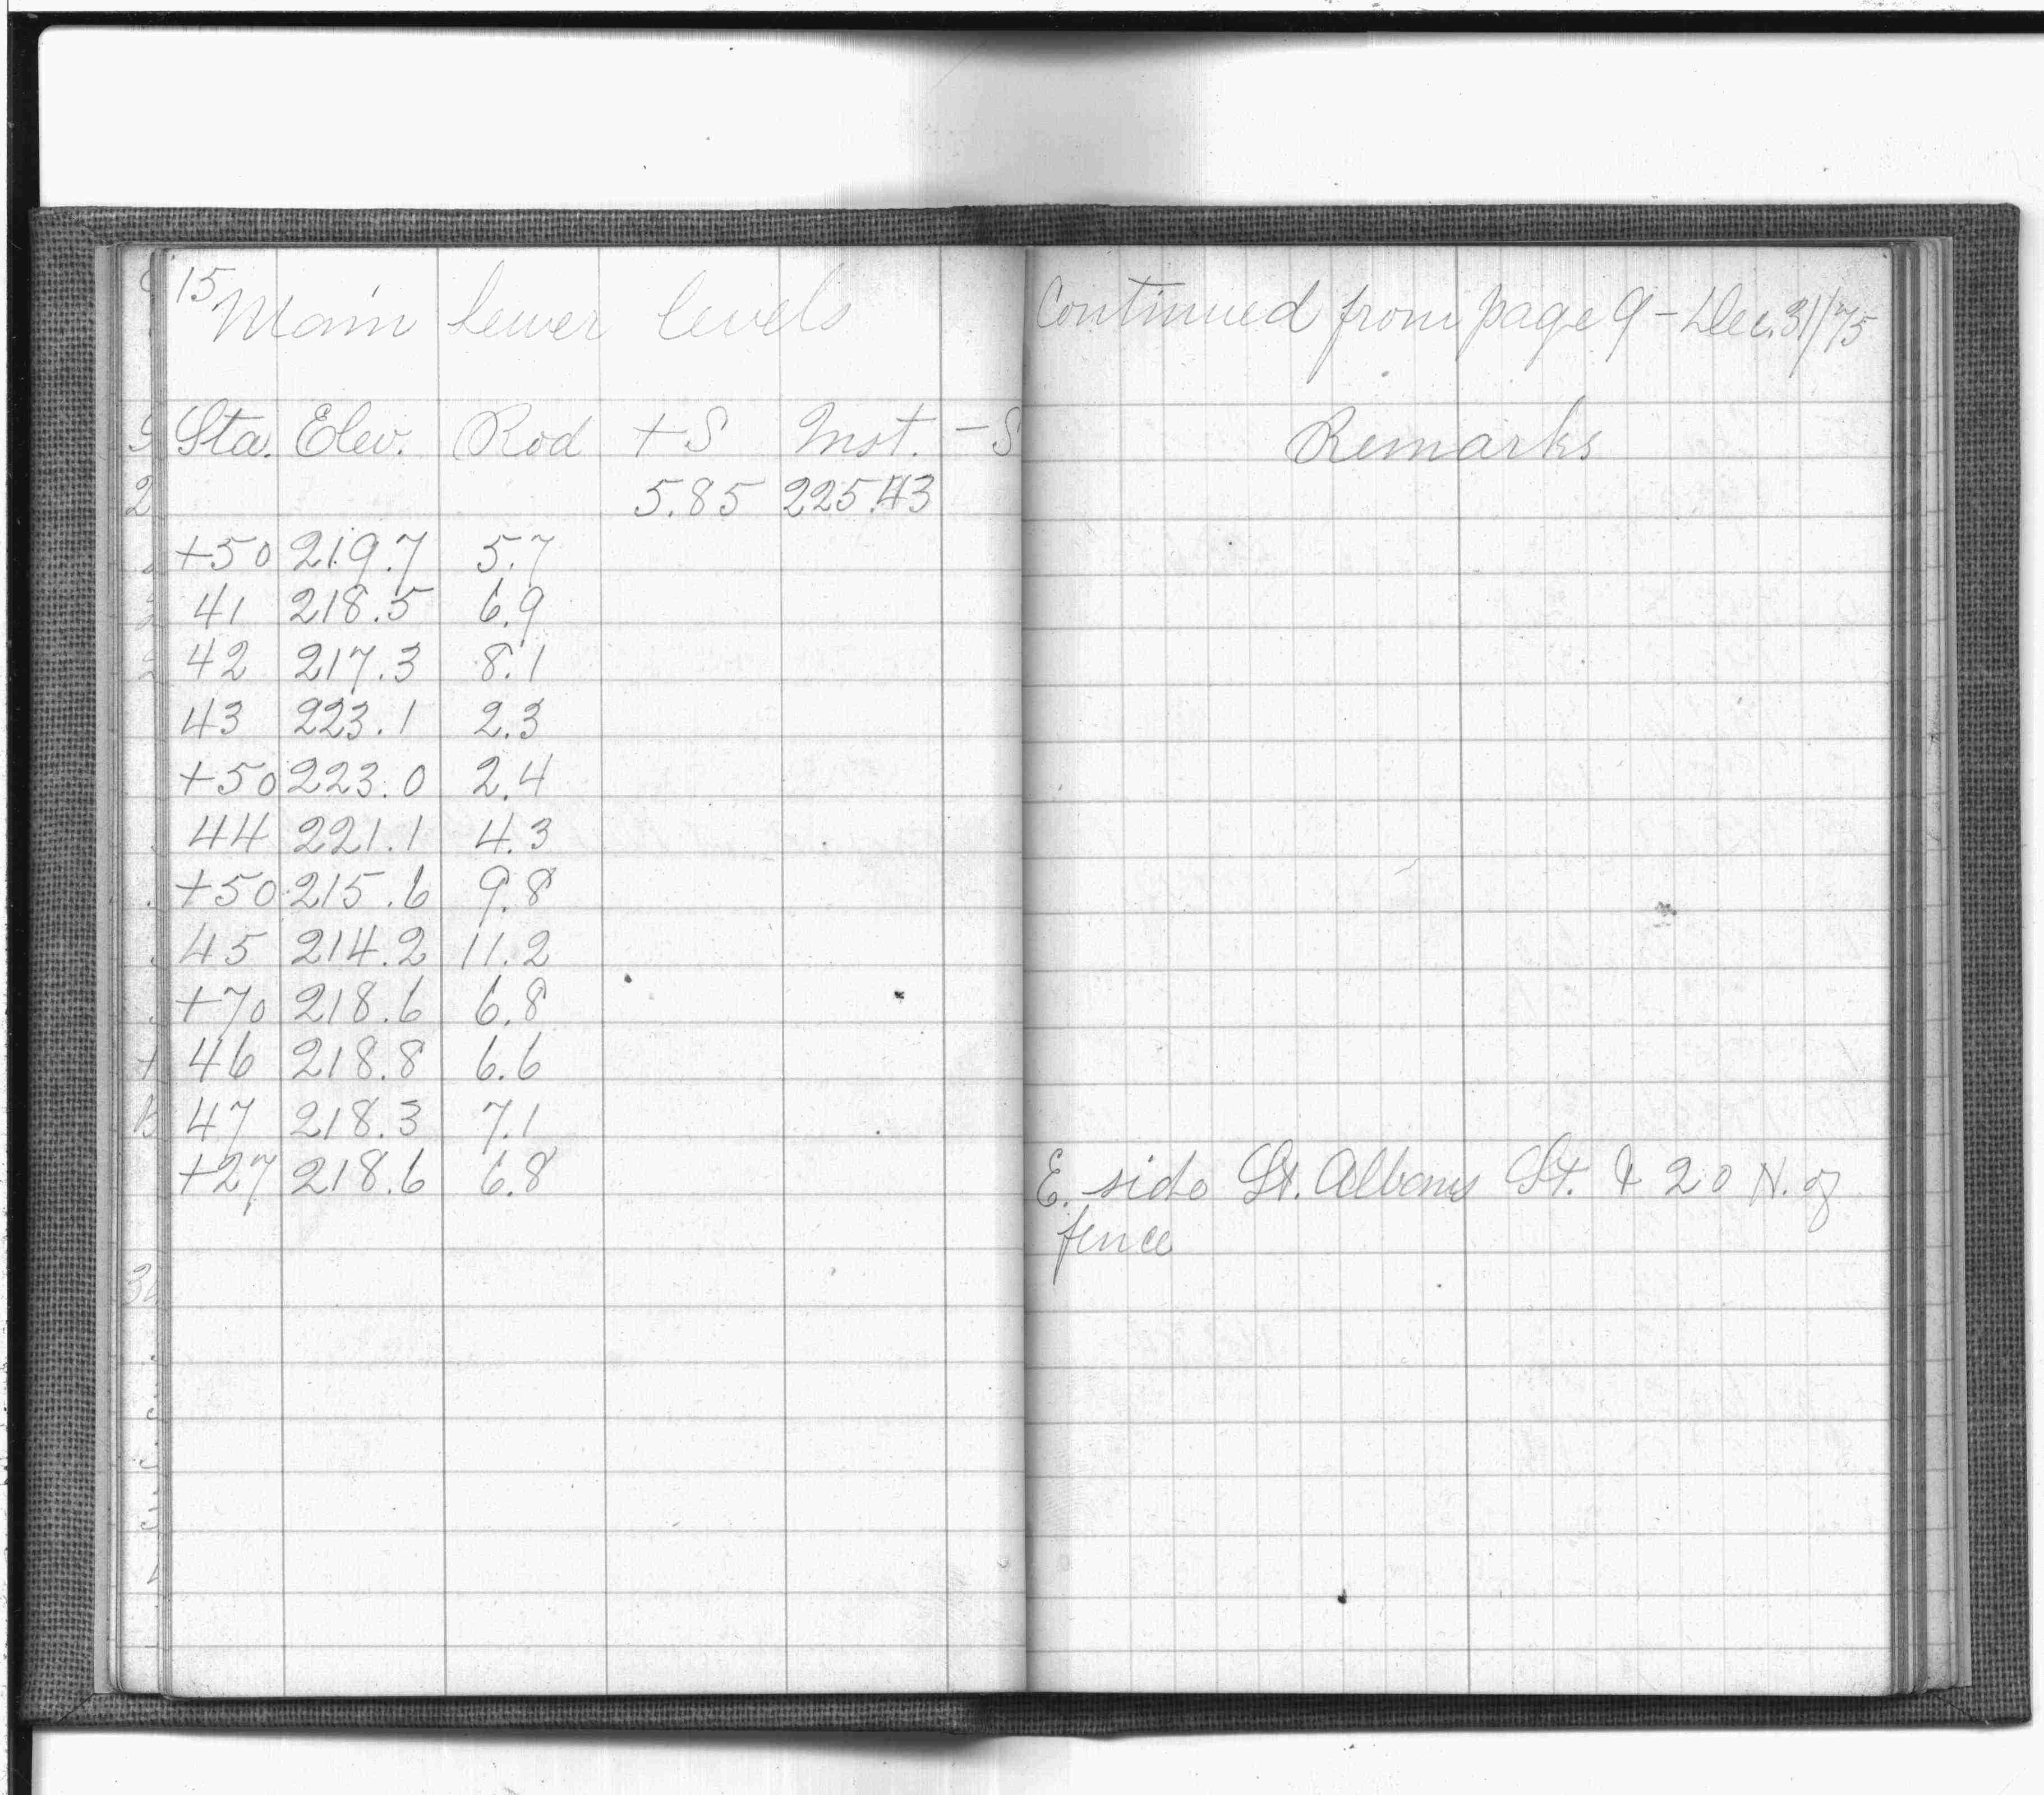 15
Main Sewer levels
Continued from page 9 - Dec. 31/75
Sta. Elev. Rod + S Inst. - S Remarks
5.85 225.43
+50 219.7 5.7
41 218.5 6.9
42 217.3 8.1
43 223.1 2.3
+50 223.0 2.4
44 221.1 4.3
+50 215.6 9.8
45 214.2 11.2
+70 218.6 6.8
46 218.8 6.6
47 218.3 7.1
+27 218.6 6.8 E. side St. Albans St. & 20 N. of
fence